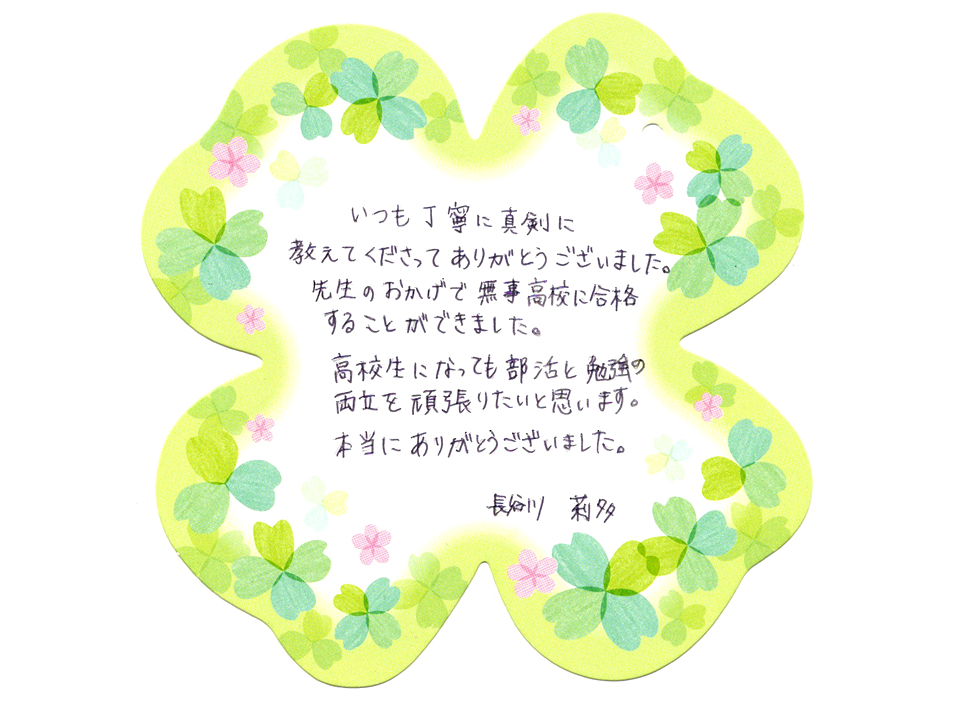 いつも丁寧に真剣に
教えてくださってありがとうございました。
先生のおかげで無事高校に合格
することができました。
高校生になっても部活と勉強の
両立を頑張りたいと思います。
本当にありがとうございました。
長谷川 莉多